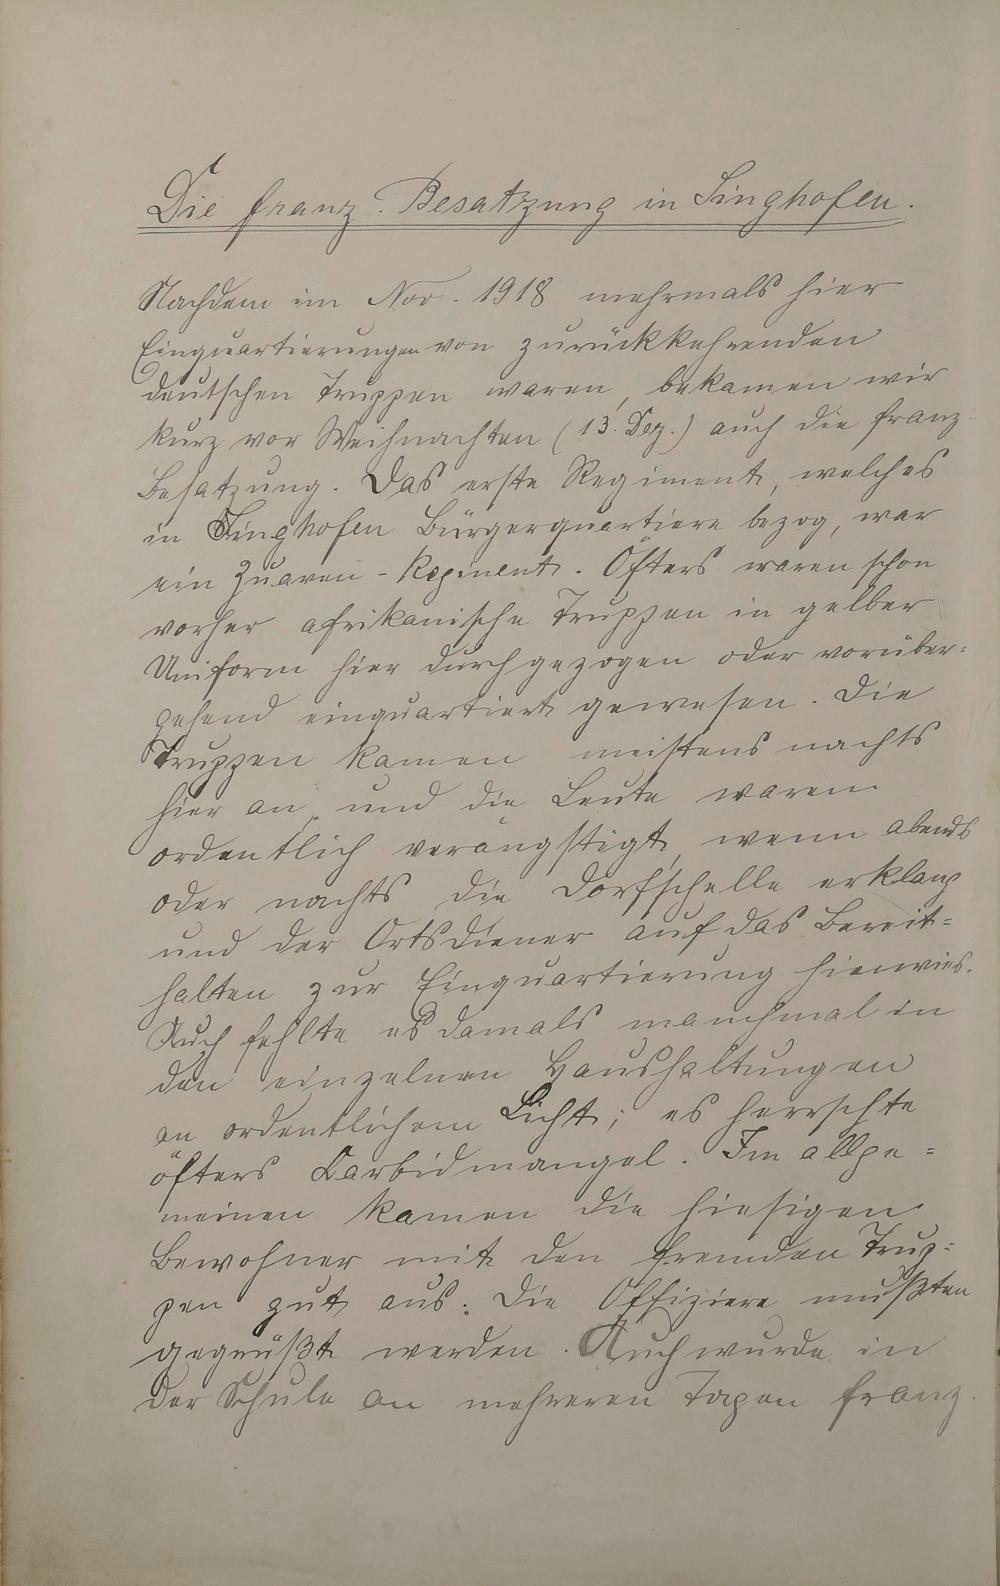 Die franz. Besatzung in Singhofen.
Nachdem im Nov. 1918 mehrmals hier
Einquartierungen von zurückkehrenden
deutschen Truppen waren, bekamen wir
kurz vor Weihnachten (13. Dez.) auch die franz.
Besatzung. Das erste Regiment, welches
in Singhofen Bürgerquartiere bezog, war
ein Zuaven-Regiment. Öfters waren schon
vorher afrikanische Truppen in gelber
Uniform hier durchgezogen oder vorüber=
gehend einquartiert gewesen. Die
Truppen kamen meistens nachts
hier an und die Leute waren
ordentlich verängstigt, wenn abends
oder nachts die Dorfschelle erklang
und der Ortsdiener auf das Bereit=
halten zur Einquartierung hinwies.
Auch fehlte es damals manchmal in
den einzelnen Haushaltungen
an ordentlichem Licht; es herrschte
öfters Carbidmangel. Im allge=
meinen kamen die hiesigen
Bewohner mit den fremden Trup=
pen gut aus. Die Offiziere mußten
gegrüßt werden. Auch wurde in
der Schule an mehreren Tagen franz.